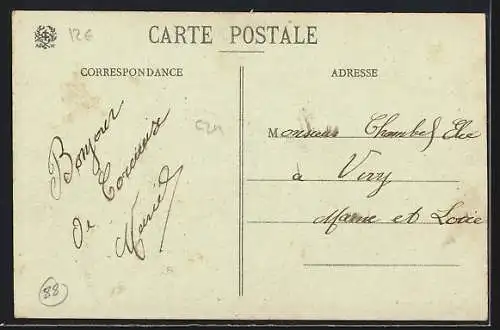 12€
CARTE POSTALE
CORRESPONDANCE
ADRESSE
Bonjour
de
Marie
Monsieur Chambel Elie
à Viry
Maine et Loire
88